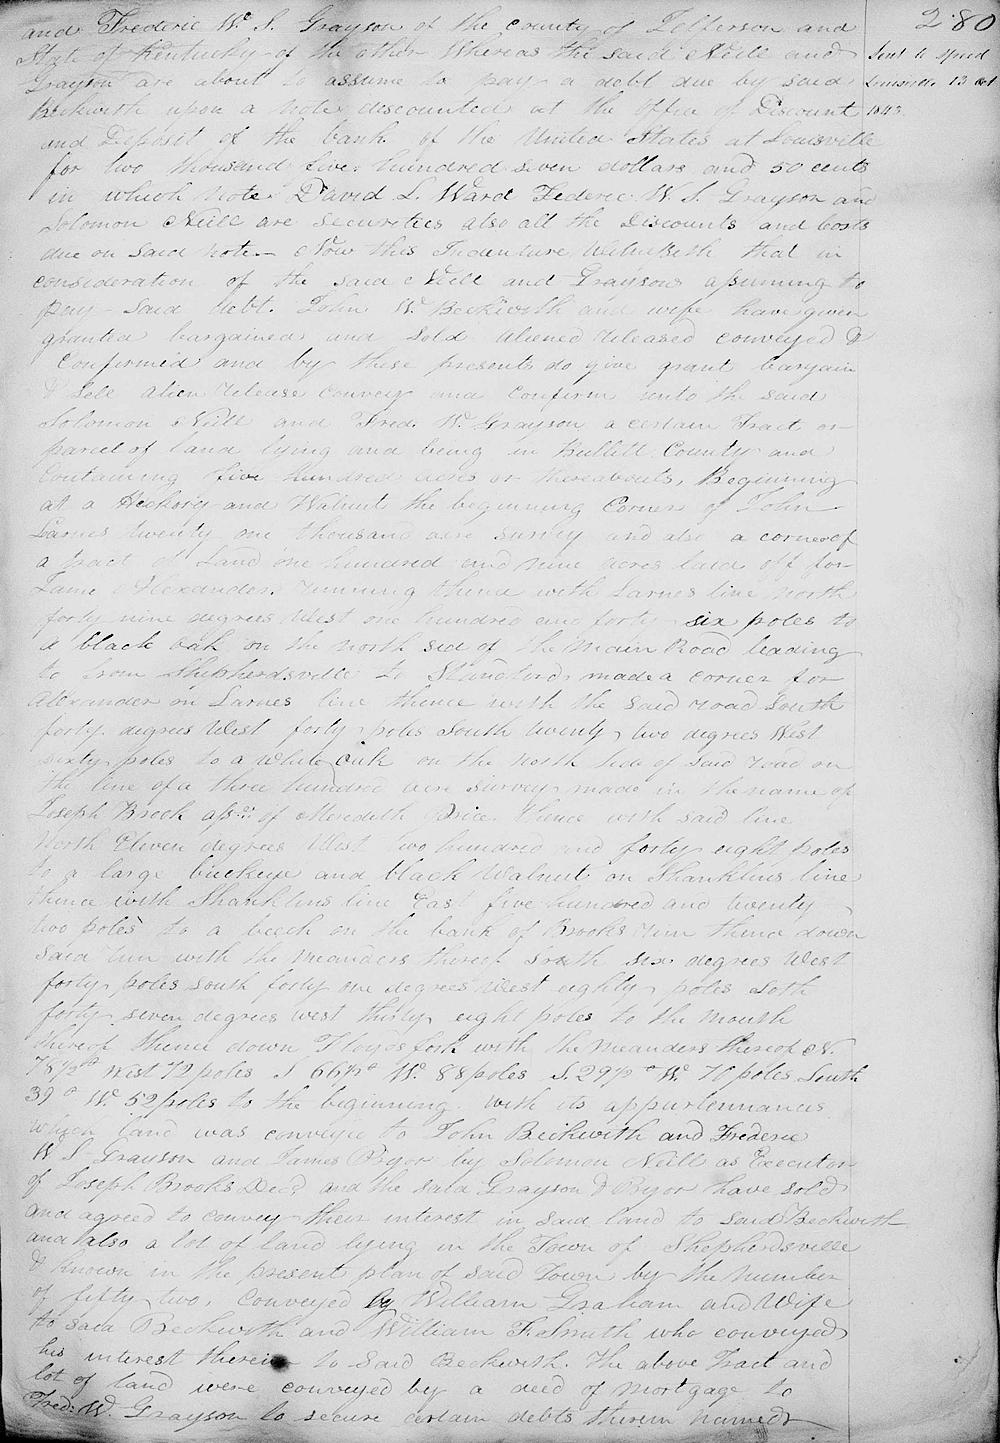 280
Sent to Speed
Louisville 13 Oct
1843
and Frederic W. S. Grayson of the County of Jefferson and
State of Kentucky of the other Whereas the said Neill and
Grayson are about to assume to pay a debt due by said
Beckwith upon a note discounted at the office of Discount
and Deposit of the bank of the United States at Louisville
for two thousand five hundred seven dollars and 50 cents
in which note David L. Ward Federic W. S. Grayson and
Solomon Neill are securities also all the Discounts and Costs
due on said note Now this Indenture Witnesseth that in
consideration of the said Neill and Grayson assuming to
pay said debt. John W. Beckwith and wife have given
granted bargained and sold aliened released conveyed &
Confirmed and by these presents do give grant bargain
& sell alien release convey and Confirm unto the said
Solomon Neill and Fred. W. Grayson a certain Tract or
parcel of land lying and being in Bullitt County and
Containing five hundred acres or thereabouts, Beginning
at a Hickory and Walnut the beginning Corner of John
Larnes twenty one thousand acre survey and also a corner of
a tract of Land one hundred and nine acres laid off for
Jame Alexander. running thence with Larnes line North
forty nine degrees West one hundred and forty six poles to
a black oak on the north side of the Main Road leading
to from Shepherdsville to Standford, made a corner for
Alexander on Larnes line thence with the said road South
forty degrees West forty poles South twenty two degrees West
sixty poles to a white oak on the North side of said road on
the line of a three hundred acre survey made in the name of
Joseph Brook assee. of Meredith Price. thence with said line
North Eleven degrees West two hundred and forty eight poles
to a large buckeye and black Walnut on Shanklins line
thence with Shanklins line East five hundred and twenty
two poles to a beech on the bank of Brooks run thence down
said run with the meanders thereof South six degrees West
forty poles south forty one degrees West eighty poles Soth
forty seven degrees west thirty eight poles to the mouth
thereof thence down Floyds fork with the Meanders thereof N.
78½° West 72 poles S 66½° W. 88 poles S. 29½° W. 70 poles South
39° W. 52 poles to the beginning with its appurtennances
which land was conveyed to John Beckwith and Frederic
W S Grayson and James Pryor by Solomon Neill as Executor
of Joseph Brooks Decd and the said Grayson & Pryor have sold
and agreed to convey their interest in said land to said Beckwith
and also a lot of land lying in the Town of Shepherdsville
& known in the present plan of said Town by the number
of fifty two, Conveyed by William Graham and Wife
to said Beckwith and William F. Smith who conveyed
his interest therein to said Beckwith. The above Tract and
lot of land were conveyed by a deed of mortgage to
Fred: W. Grayson to secure certain debts therein named